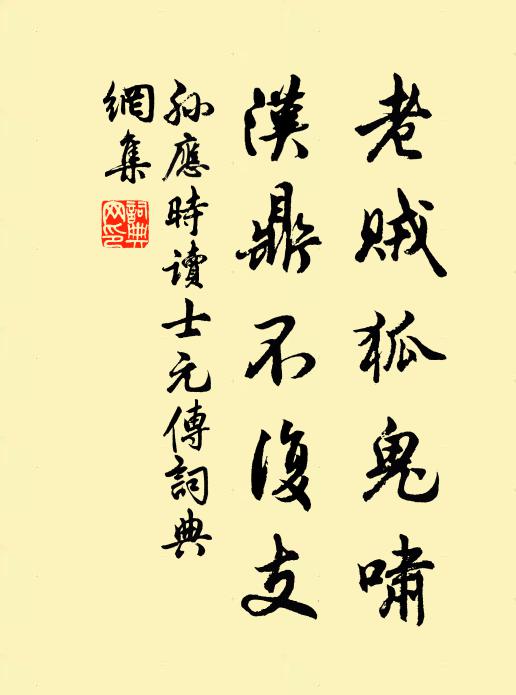 老賊狐鬼嘯
漢鼎不復支
孫應時讀士元傳詞典
網集
詞典
網印